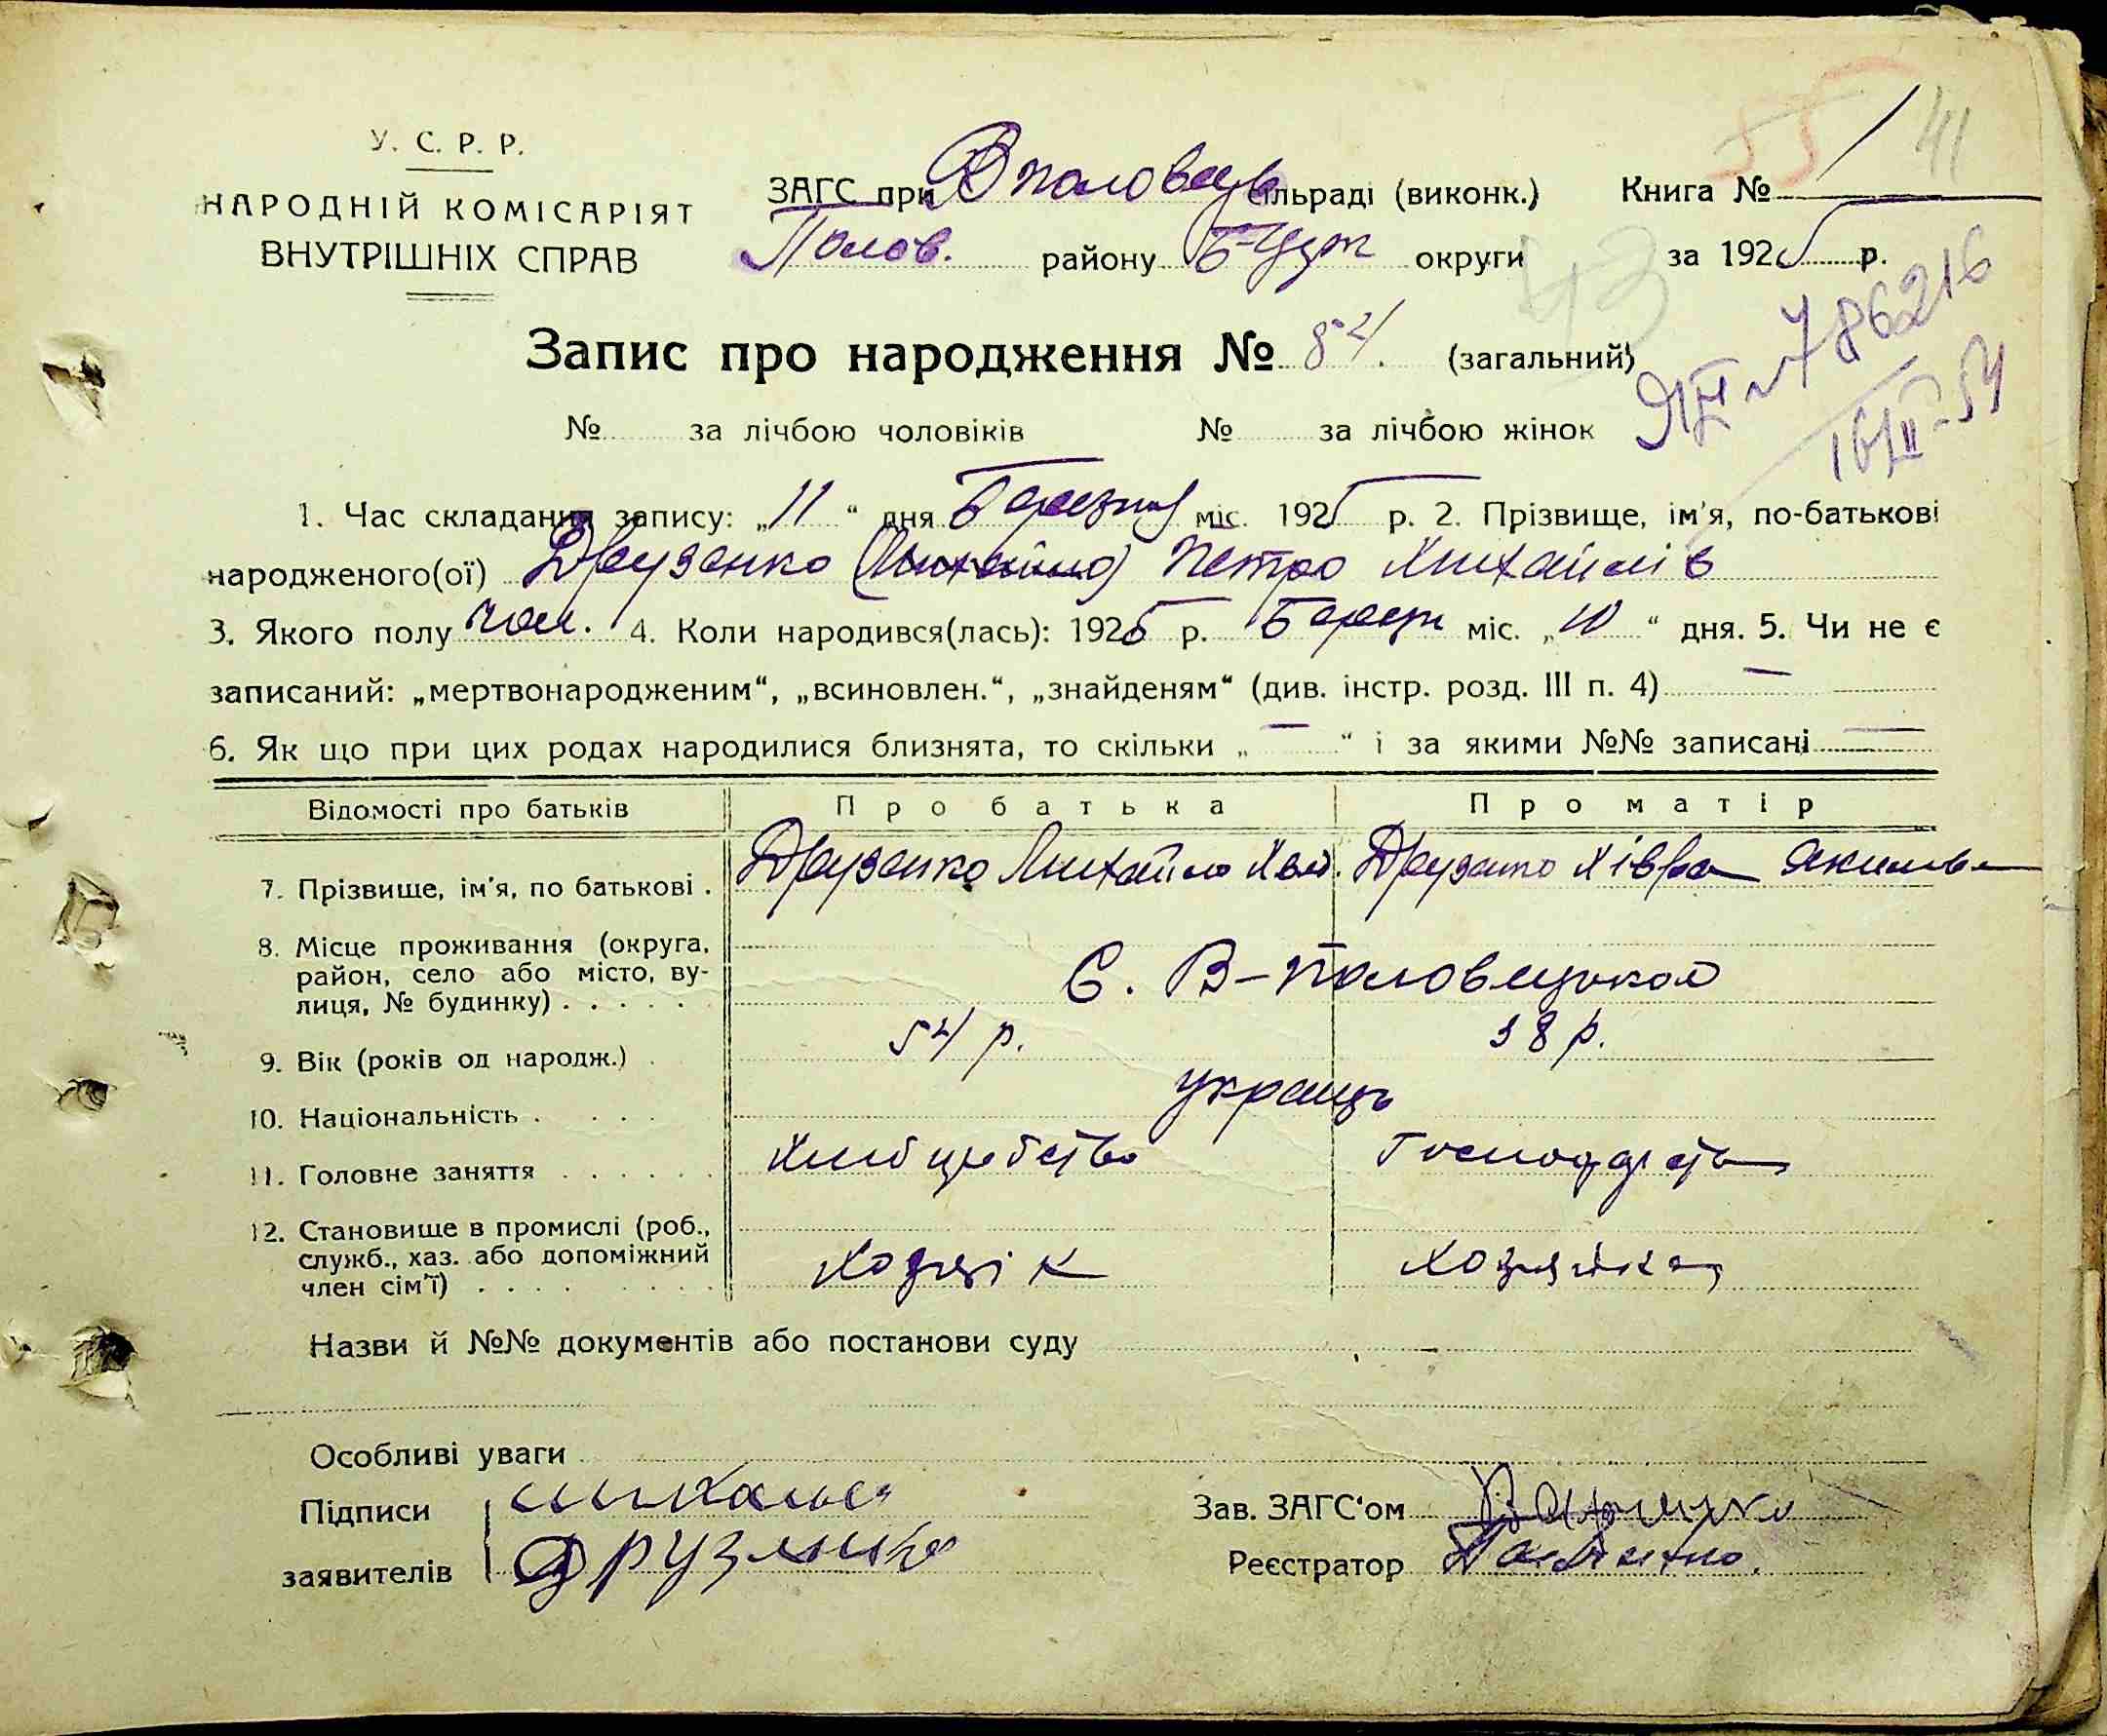 У. С. Р. Р.
НАРОДНІЙ КОМІСАРІЯТ
ВНУТРІШНІХ СПРАВ
ЗАГС при В половец сільраді (виконк.) Книга № 1 41
Полов. району Б-Церк округи за 1925 р.
43
Запис про народження № 84. (загальний)
№ 786216
16/II-54
№ за лічбою чоловіків № за лічбою жінок
1. Час складання запису: „11“ дня Березня міс. 1925 р. 2. Прізвище, ім'я, по-батькові
народженого(ої) Друзенко (Михайло) Петро Михайлів
3. Якого полу чол. 4. Коли народився(лась): 1925 р. Березн міс. „10“ дня. 5. Чи не є
записаний: „мертвонародженим“, „всиновлен.“, „знайденям“ (див. інстр. розд. III п. 4) —
6. Як що при цих родах народилися близнята, то скільки „—“ і за якими №№ записані —
Відомості про батьків Про батька Про матір
7. Прізвище, ім'я, по батькові . Друзенко Михайло Друзенко Хівря
8. Місце проживання (округа,
район, село або місто, ву-
лиця, № будинку) . . . . . . С. В-Половецькой
9. Вік (років од народж.) . 54 р. 38 р.
10. Національність . . . . українц
11. Головне заняття . . . . . .
12. Становище в промислі (роб.,
служб., хаз. або допоміжний
член сім'ї) . . . . . . . . Хозяїк Хозяйка
Назви й №№ документів або постанови суду
Особливі уваги
Підписи
заявителів Друзенко
Зав. ЗАГС'ом
Реєстратор